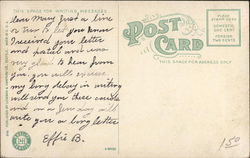 THIS SPACE FOR WRITING MESSAGES
Dear Mary Just a line
or two to let you know
I received your letter
and postal and was
very glad to hear from
you. you will excuse
my long delay in writing
will send you these cards
and in a few days will
write you a long letter
Effie B.
POST CARD
THIS SPACE FOR ADDRESS ONLY
PLACE
STAMP HERE
DOMESTIC
ONE CENT
FOREIGN
TWO CENTS
150